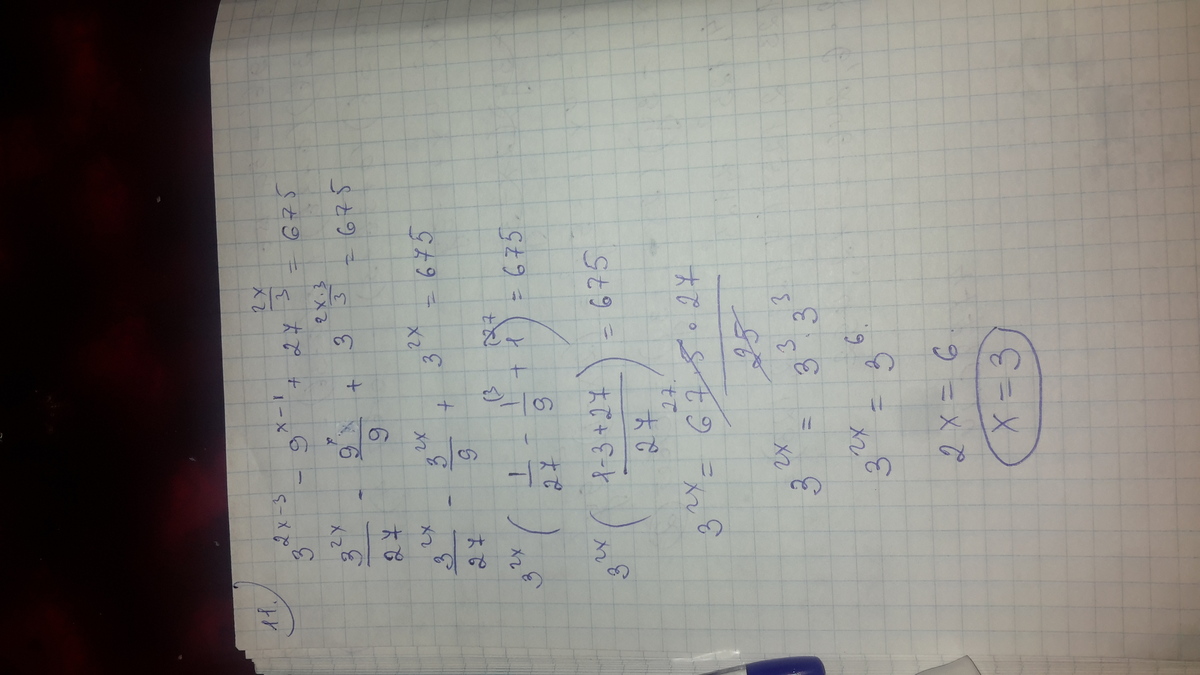 11.)
3^{2x-3} - 9^{x-1} + 27^{\frac{2x}{3}} = 675
\frac{3^{2x}}{27} - \frac{9^{x}}{9} + 3^{\frac{2x·3}{3}} = 675
\frac{3^{2x}}{27} - \frac{3^{2x}}{9} + 3^{2x} = 675
3^{2x} ( \frac{1}{27} - \frac{1}{9}^{(3} + 1^{(27} ) = 675
3^{2x} ( \frac{1-3+27}{27} ) = 675
3^{2x} = \frac{675 · 27}{25} 27
3^{2x} = 3^{3} · 3^{3}
3^{2x} = 3^{6}
2x = 6
x = 3